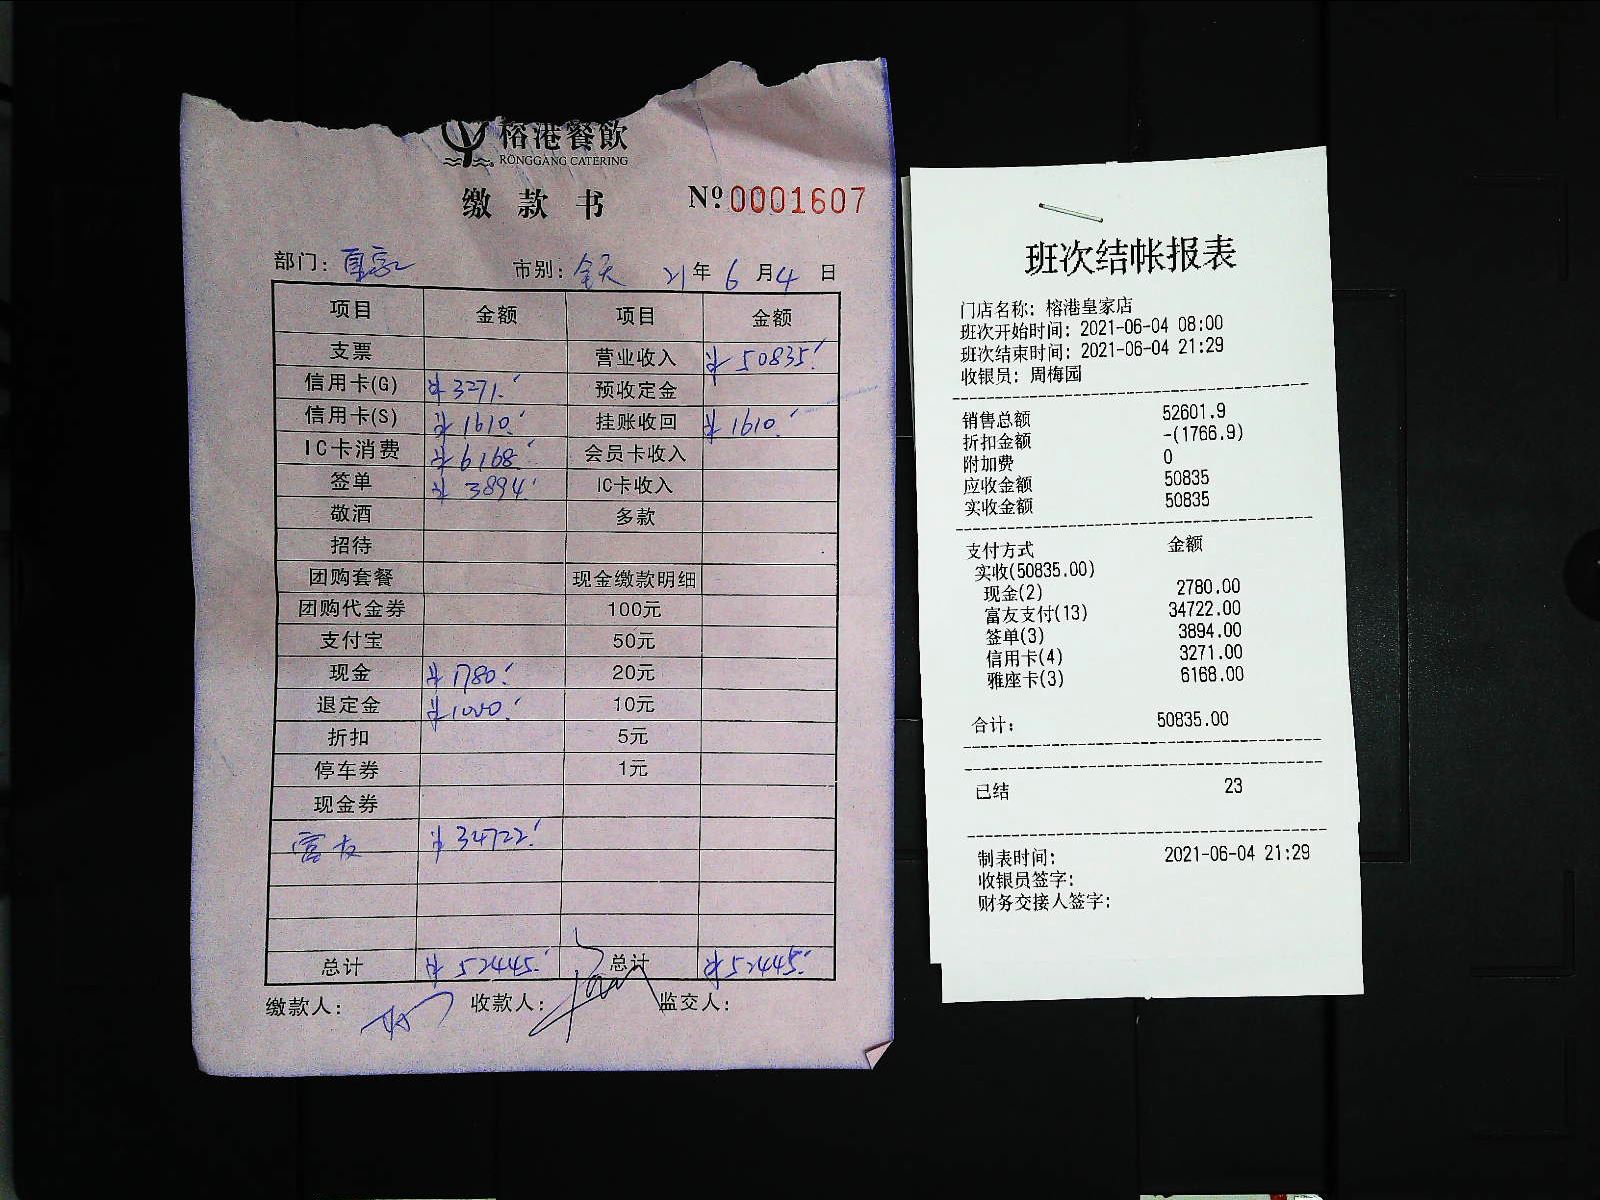 榕港餐飲
RONGGANG CATERING
缴款书 Nº 0001607
部门: 皇家 市别: 全天 21年 6月4日
项目 金额 项目 金额
支票 营业收入 ¥50835.
信用卡(G) ¥3271. 预收定金
信用卡(S) ¥1610. 挂账收回 ¥1610.
IC卡消费 ¥6168. 会员卡收入
签单 ¥3894. IC卡收入
敬酒 多款
招待
团购套餐 现金缴款明细
团购代金券 100元
支付宝 50元
现金 ¥1780. 20元
退定金 ¥1000. 10元
折扣 5元
停车券 1元
现金券
富友 ¥34722.
总计 ¥52445. 总计 ¥52445.
缴款人: 收款人: 监交人:
班次结帐报表
门店名称: 榕港皇家店
班次开始时间: 2021-06-04 08:00
班次结束时间: 2021-06-04 21:29
收银员: 周梅园
销售总额 52601.9
折扣金额 -(1766.9)
附加费 0
应收金额 50835
实收金额 50835
支付方式 金额
实收(50835.00)
现金(2) 2780.00
富友支付(13) 34722.00
签单(3) 3894.00
信用卡(4) 3271.00
雅座卡(3) 6168.00
合计: 50835.00
已结 23
制表时间: 2021-06-04 21:29
收银员签字:
财务交接人签字: